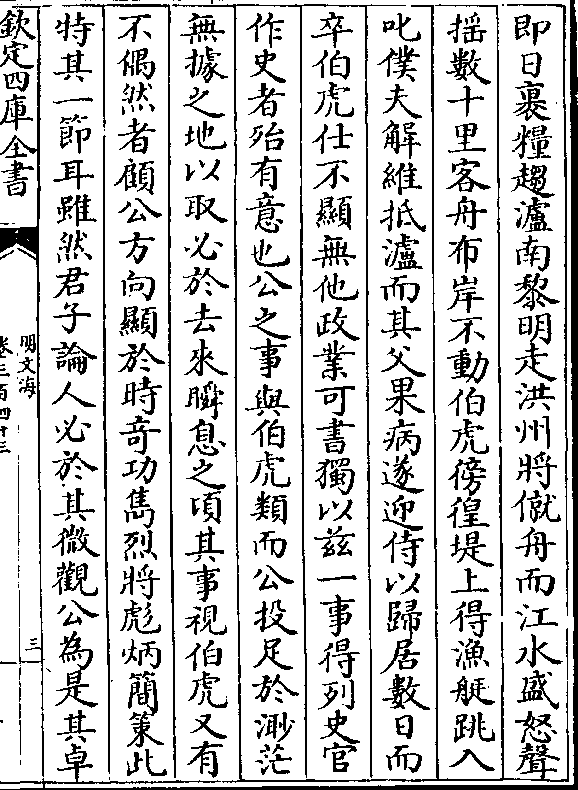 即日裹糧趨瀘南黎明走洪州將僦舟而江水盛怒聲
搖數十里客舟布岸不動伯虎徬徨堤上得漁艇跳入
叱僕夫解維抵瀘而其父果病遂迎侍以歸居數日而
卒伯虎仕不顯無他政業可書獨以兹一事得列史官
作史者殆有意也公之事與伯虎類而公投足於渺茫
無據之地以取必於去來瞬息之頃其事視伯虎又有
不偶然者顧公方向顯於時竒功雋烈將彪炳簡策此
特其一節耳雖然君子論人必於其微觀公為是其卓
欽定四庫全書
明文海
卷三百四十三
三